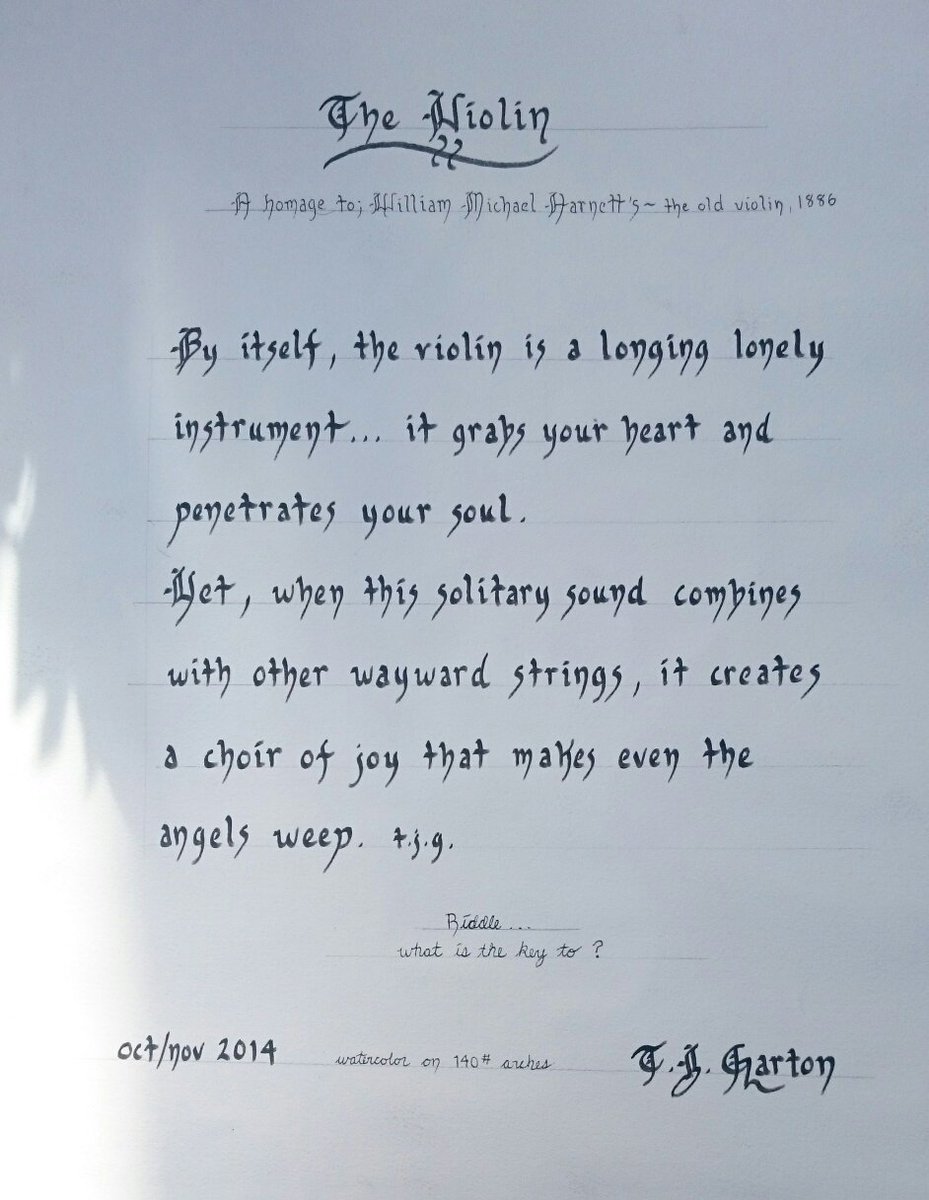 The Violin
A homage to; William Michael Harnett's ~ the old violin, 1886
By itself, the violin is a longing lonely
instrument... it grabs your heart and
penetrates your soul.
Yet, when this solitary sound combines
with other wayward strings, it creates
a choir of joy that makes even the
angels weep. t.j.g.
Riddle...
what is the key to ?
oct/nov 2014 watercolor on 140# arches T.J. Garton